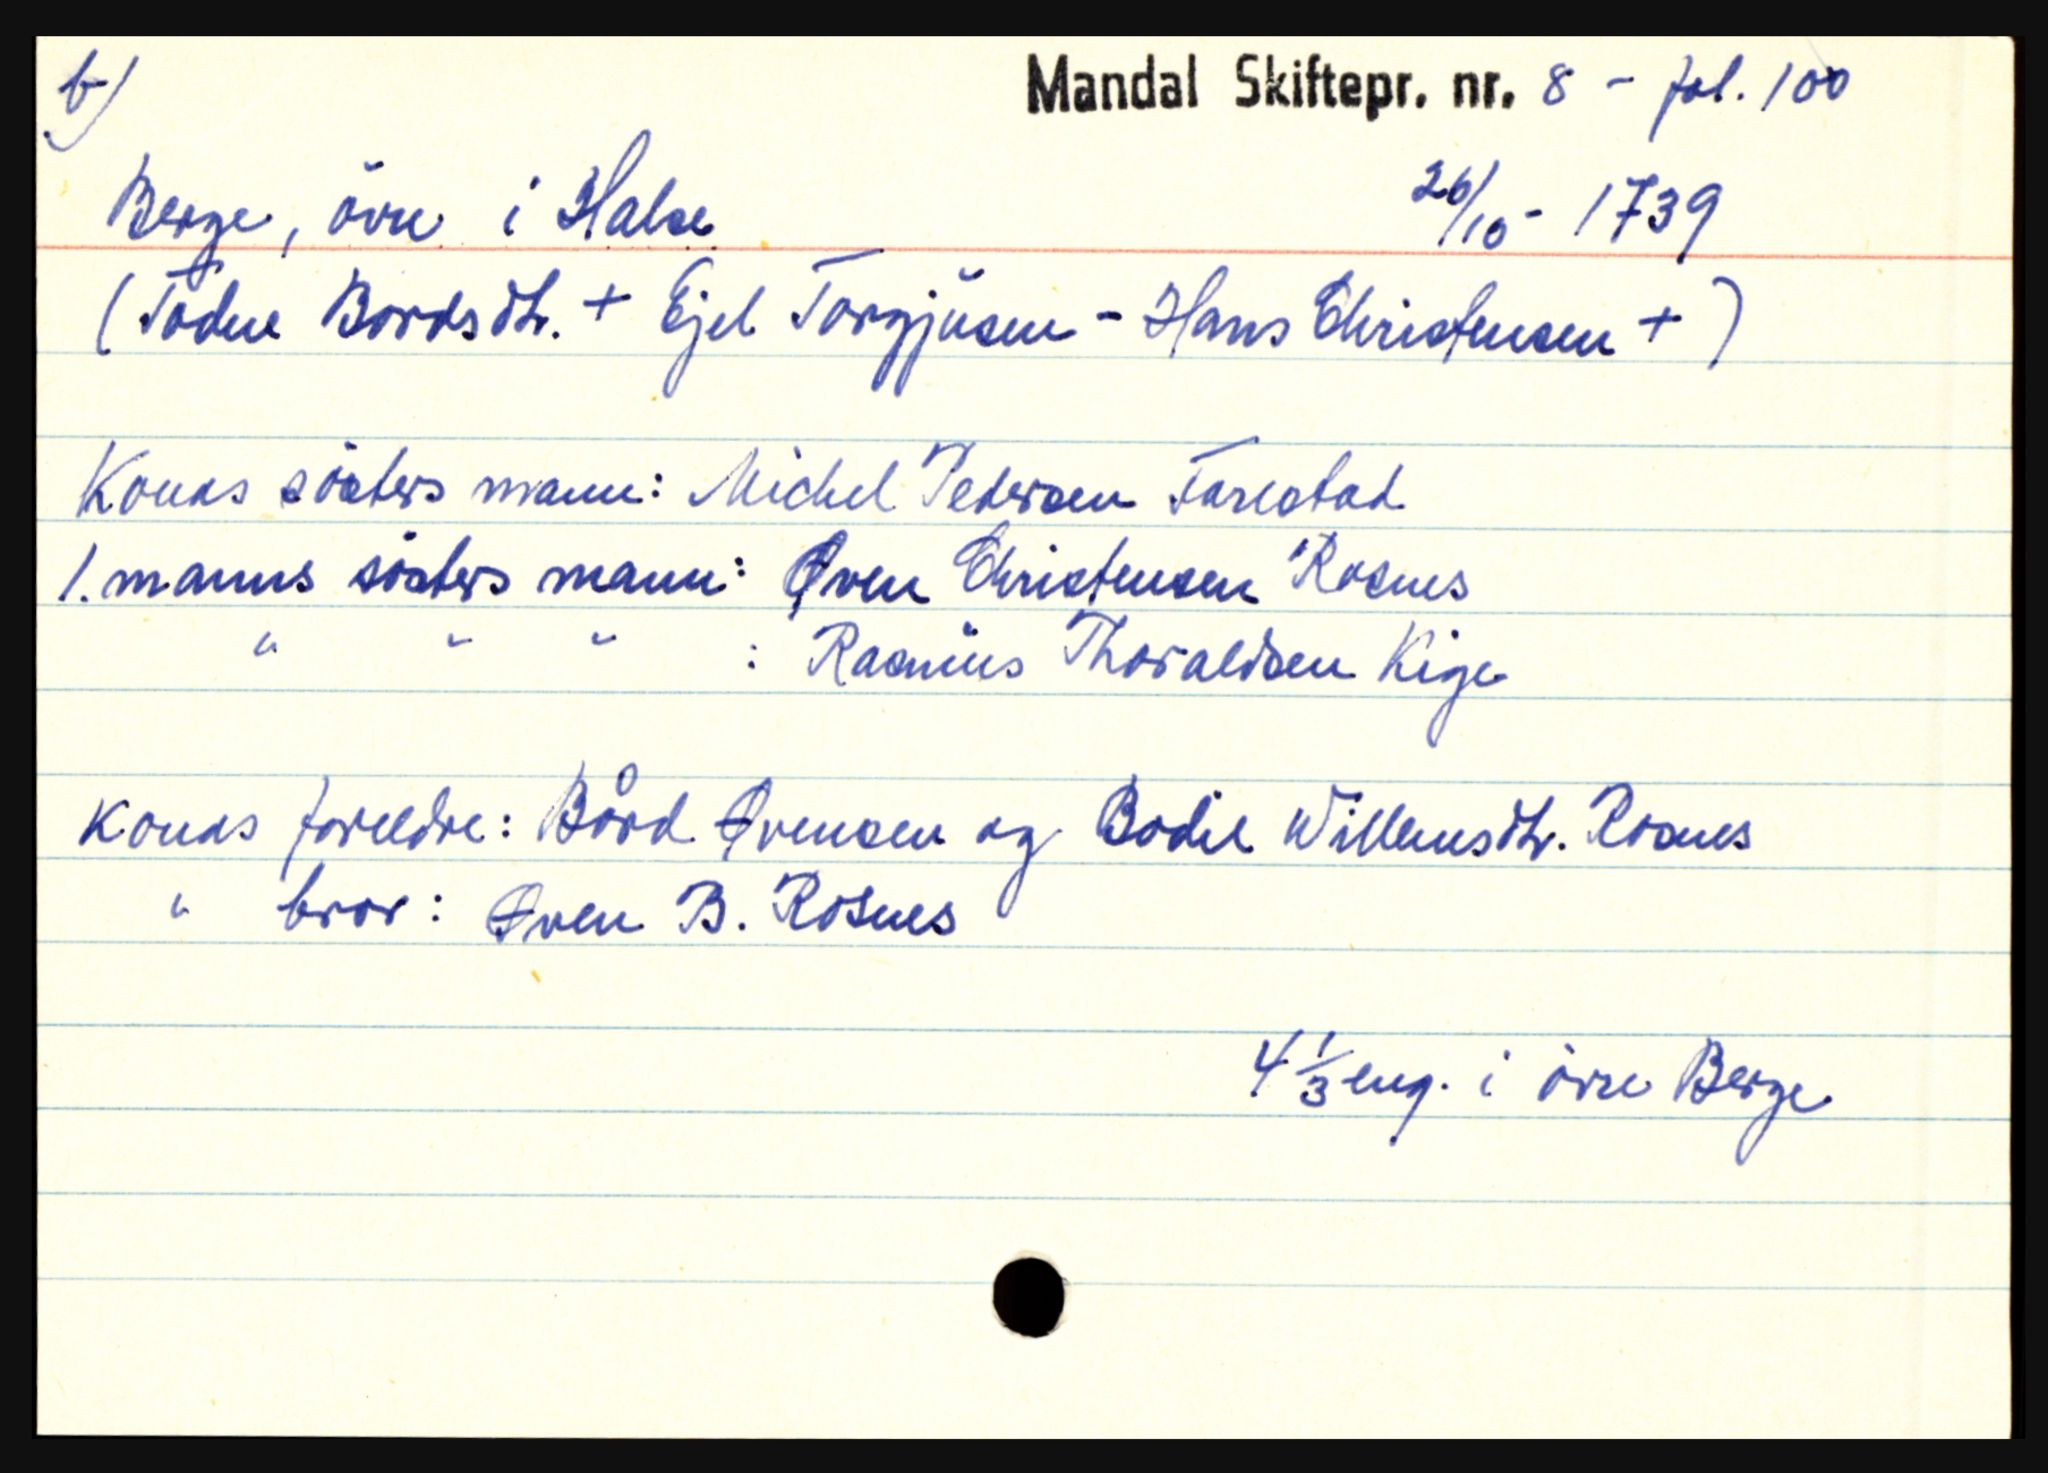 b)
Mandal Skiftepr. nr. 8 - fol. 100
Berge, övre i Halse 26/10 - 1739
(Todne Bordsdtr. + Ejel Torgjüsen - Hans Christensen +)
Konas sösters mann: Michel Pedersen Farestad
1. manns sösters mann: Øven Christensen Rosnes
" " " : Rasmüs Thoraldsen Kige
Konas foreldre: Bård Øvensen og Bodil Willumsdtr. Rosnes
" bror: Øven B. Rosnes
4 1/3 eng. i övre Berge